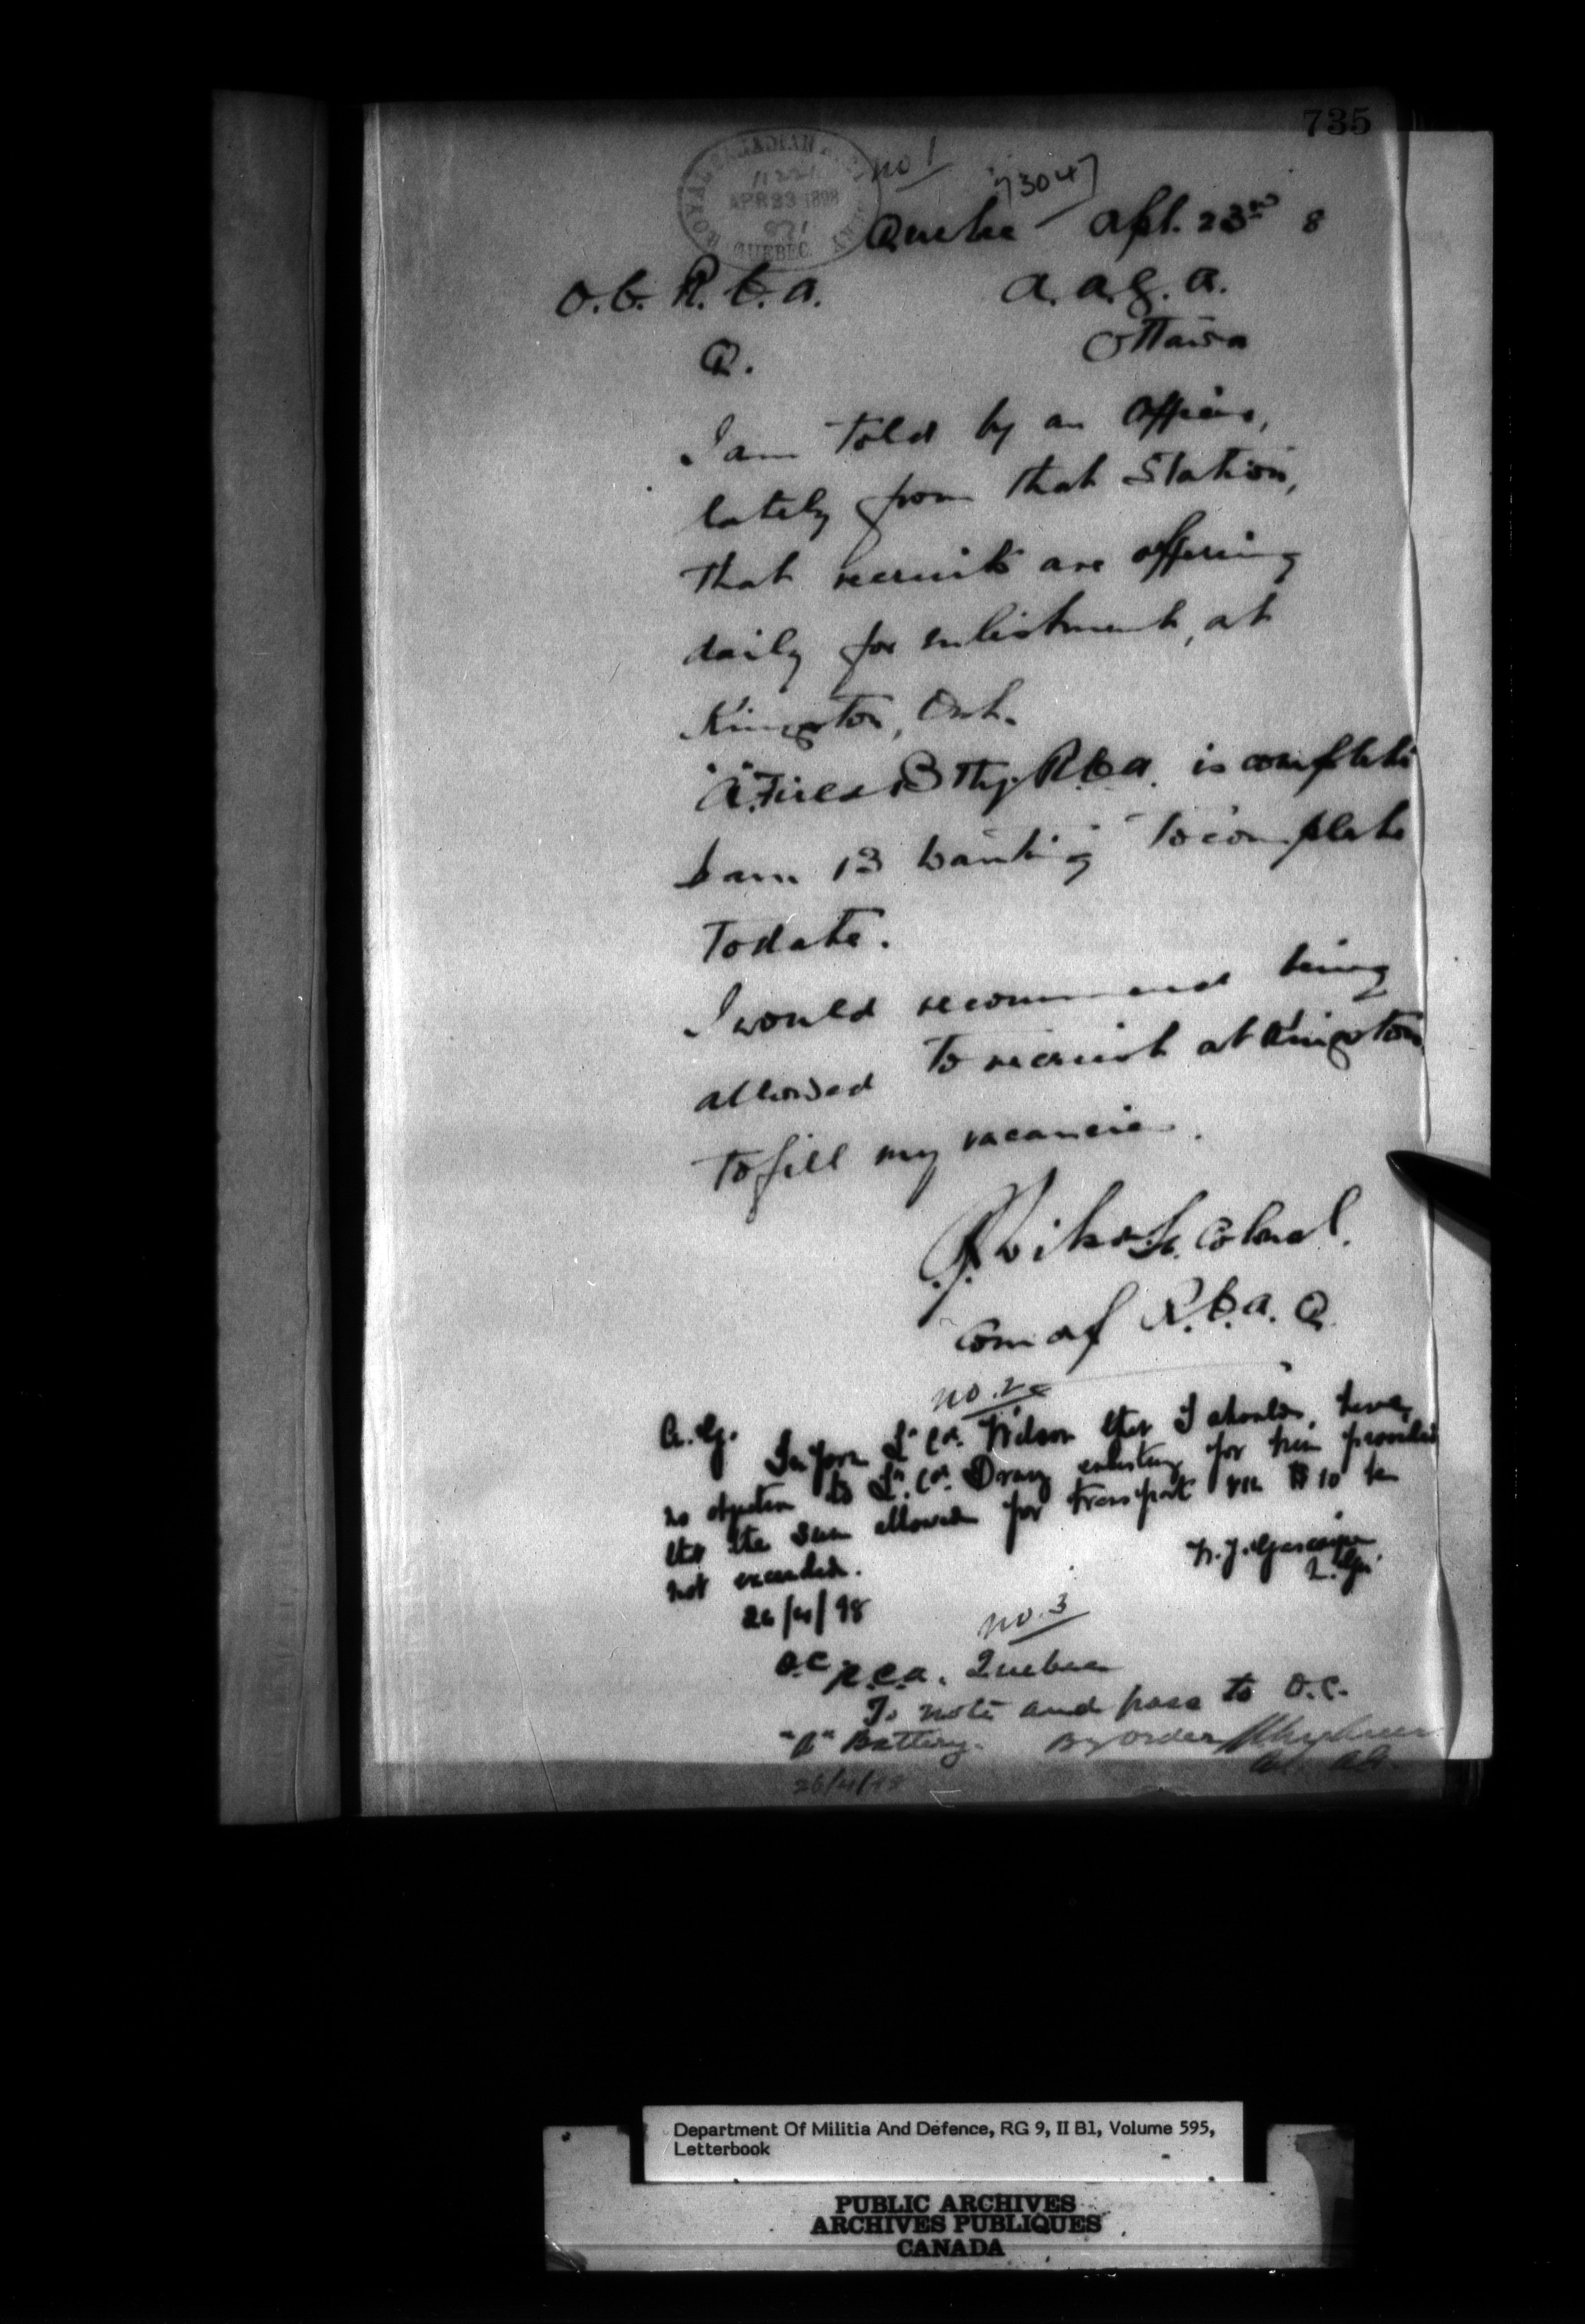 735
ROYAL CANADIAN ARTILLERY
11221
APR 23 1898
QUEBEC
No 1
73047
Quebec Apl. 23rd 8
O.C. R.C.A. A.A.G.A.
Q. Ottawa
I am told by an Officer,
lately from that Station,
that recruits are offering
daily for enlistment, at
Kingston, Ont.
"A" Field Bty. R.C.A. is complete
I am 13 wanting to complete
to date.
I would recommend being
allowed to recruit at Kingston
to fill my vacancies.
Wilson Lt. Colonel.
Com of R.C.A. Q
No. 2
A.G. Inform Lt Col. Wilson that I should have
no objection to Lt. Col. Drury enlisting for him provided
that the sum allowed for transport viz $10 be
not exceeded.
W. J. Gascoigne
M. Gl.
26/4/98
No. 3
O.C. R.C.A. Quebec
To note and pass to O.C.
"A" Battery. By Order
26/4/98
Department Of Militia And Defence, RG 9, II B1, Volume 595,
Letterbook
PUBLIC ARCHIVES
ARCHIVES PUBLIQUES
CANADA